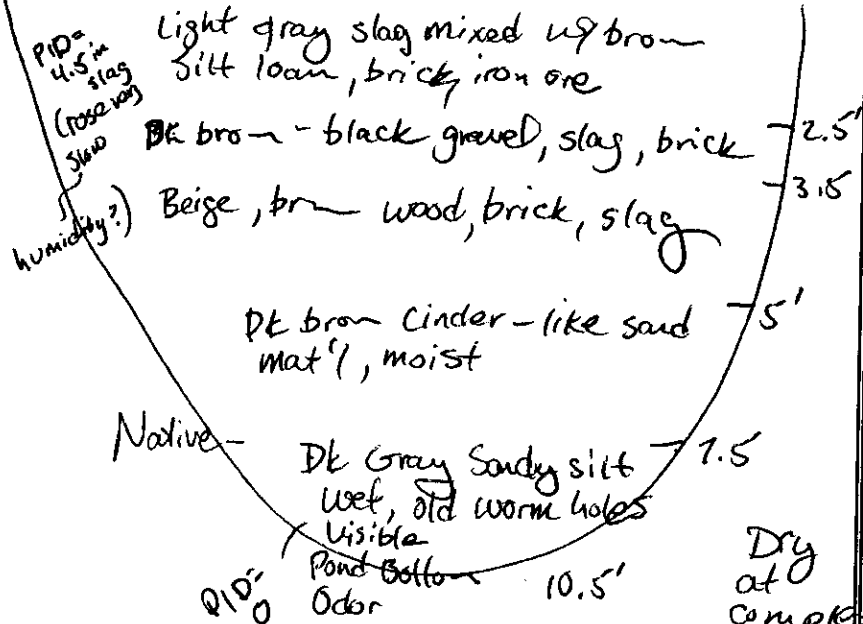 PID=
4.5 in
slag
(rose very
slow
humidity?)
Light gray slag mixed w/ brown
silt loam, brick, iron ore
Dk brown - black gravel, slag, brick
2.5'
3.5
Beige, brn wood, brick, slag
Dk brown cinder-like sand
mat'l, moist
5'
Native-
7.5
Dk Gray Sandy silt
wet, old worm holes
visible
Pond Bottom
Odor
PID=
0
10.5'
Dry
at